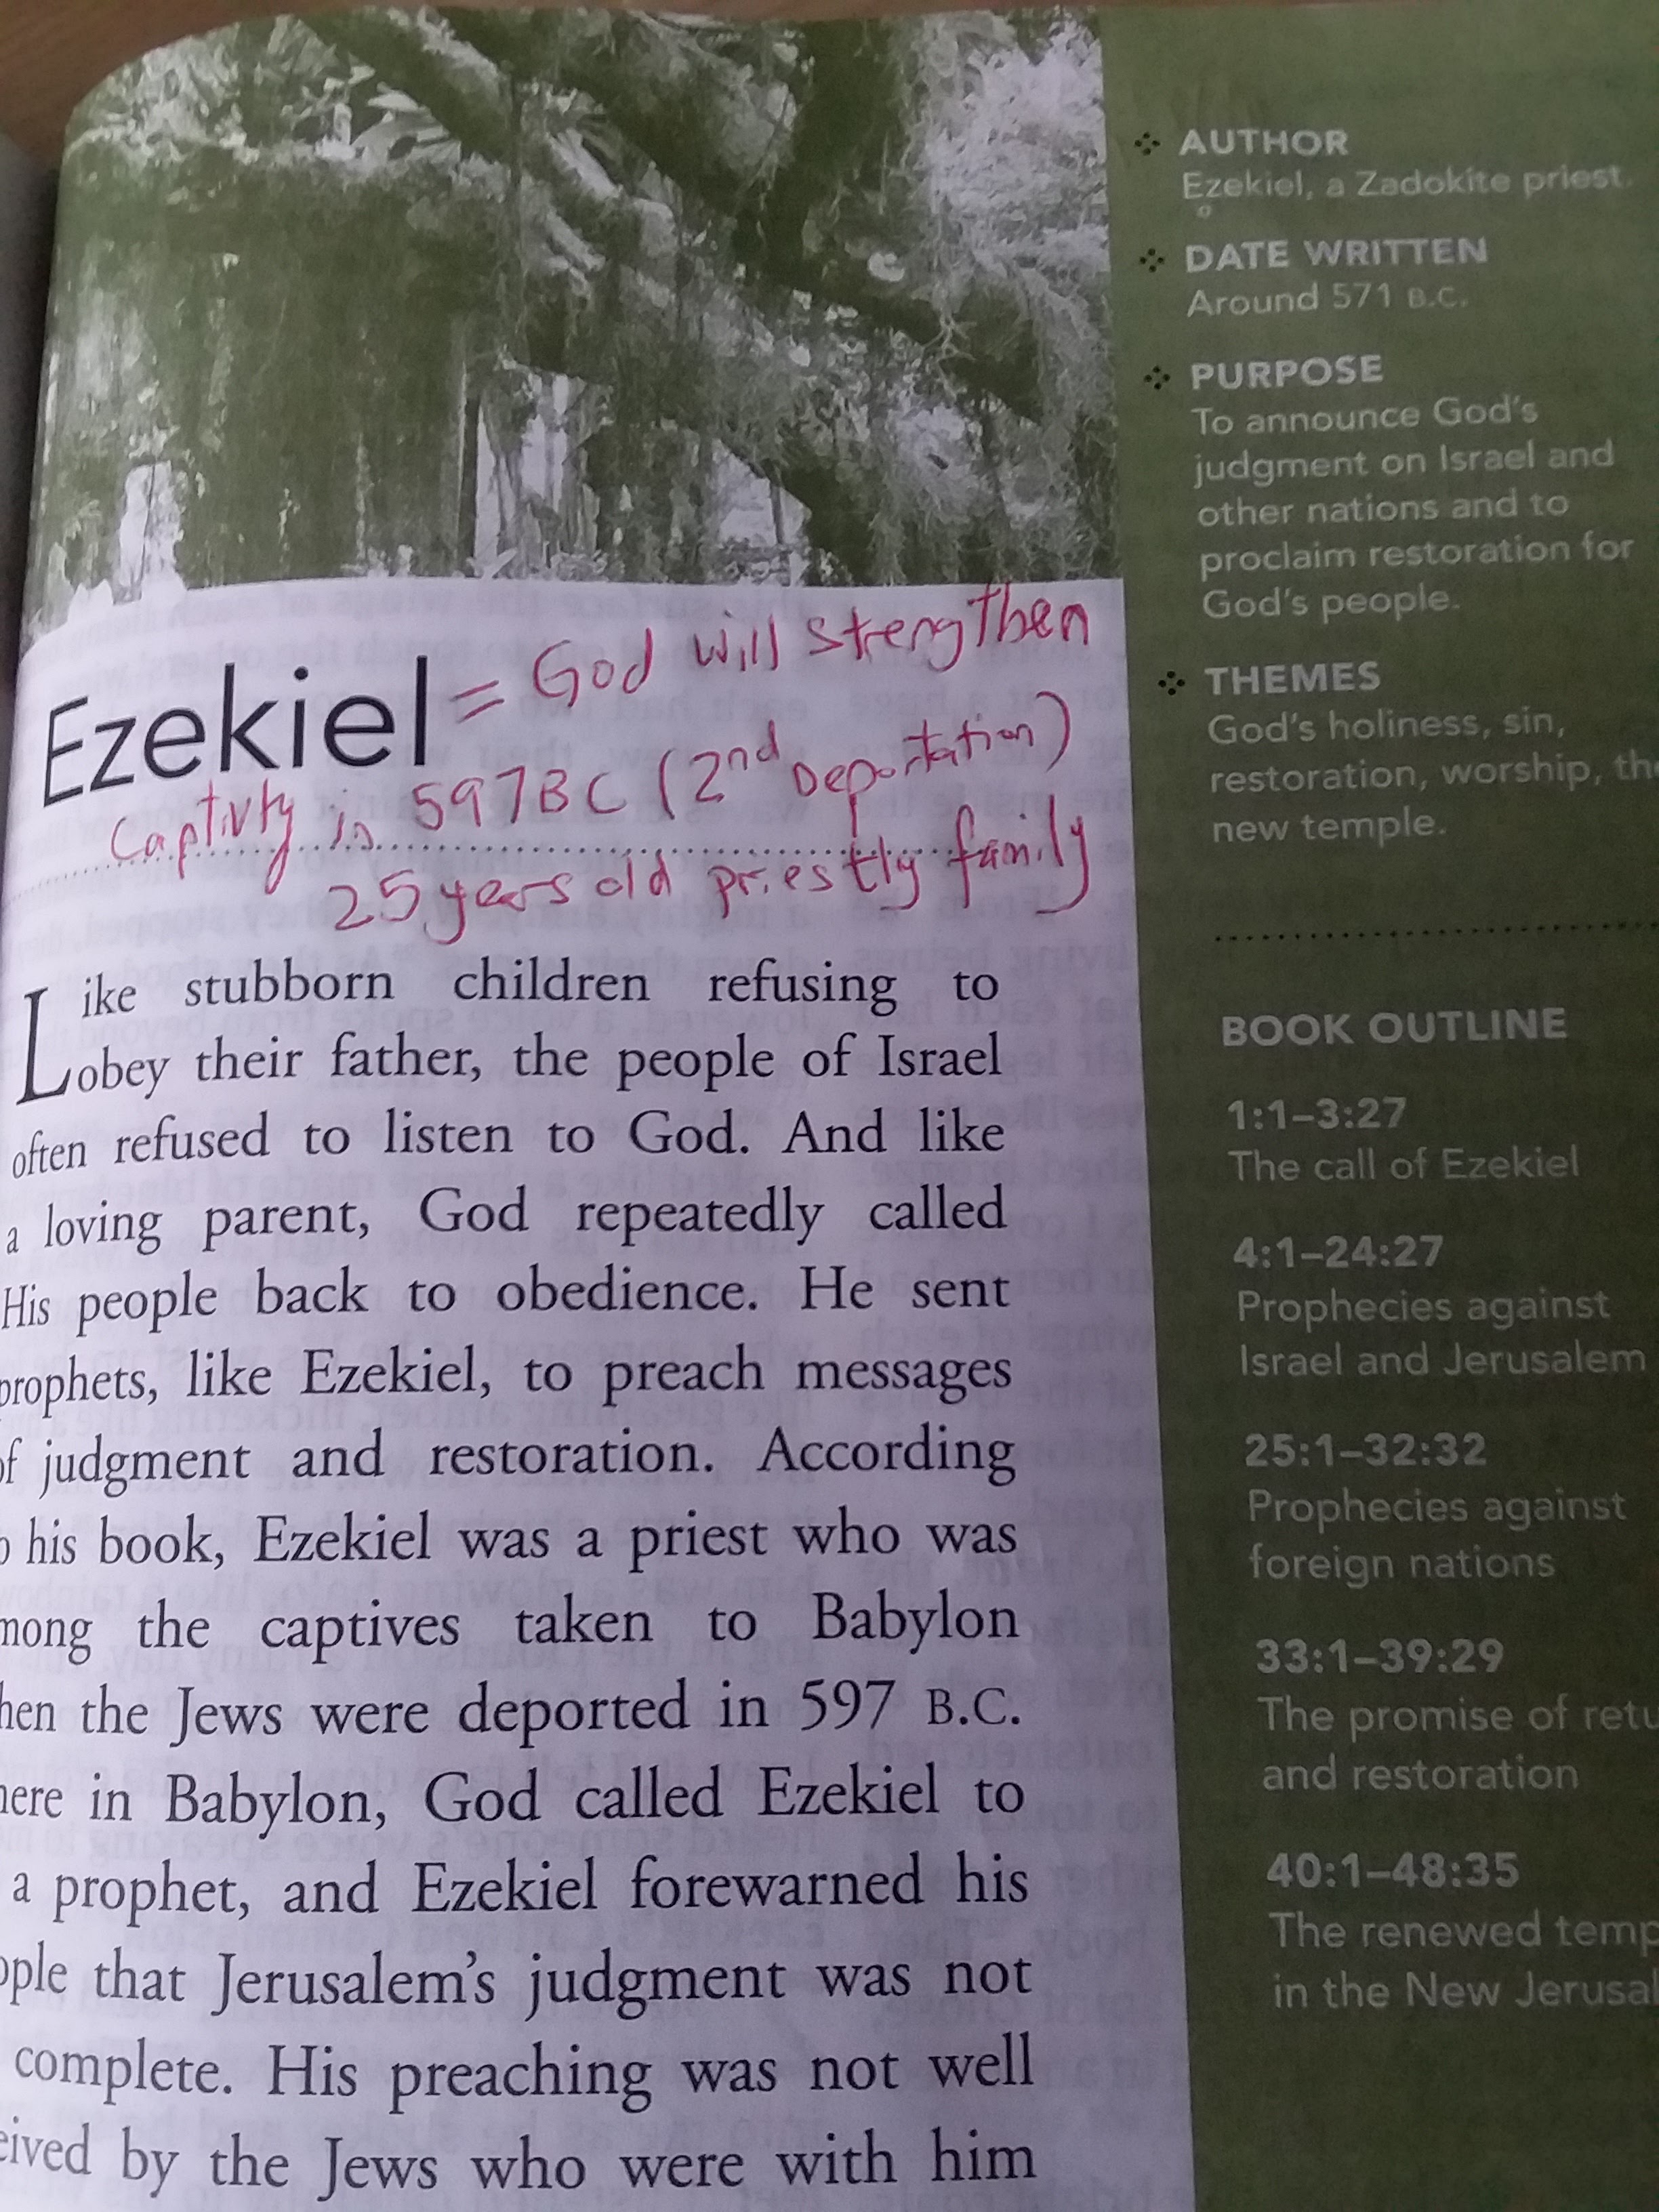 Ezekiel = God will strengthen
Captivity in 597BC (2nd Deportation)
25 years old priestly family
Like stubborn children refusing to
obey their father, the people of Israel
often refused to listen to God. And like
a loving parent, God repeatedly called
His people back to obedience. He sent
prophets, like Ezekiel, to preach messages
of judgment and restoration. According
his book, Ezekiel was a priest who was
the captives taken to Babylon
the Jews were deported in 597 B.C.
in Babylon, God called Ezekiel to
a prophet, and Ezekiel forewarned his
that Jerusalem's judgment was not
complete. His preaching was not well
by the Jews who were with him
AUTHOR
Ezekiel, a Zadokite priest.
DATE WRITTEN
Around 571 B.C.
PURPOSE
To announce God's
judgment on Israel and
other nations and to
proclaim restoration for
God's people.
THEMES
God's holiness, sin,
restoration, worship, the
new temple.
BOOK OUTLINE
1:1–3:27
The call of Ezekiel
4:1–24:27
Prophecies against
Israel and Jerusalem
25:1–32:32
Prophecies against
foreign nations
33:1–39:29
The promise of
and restoration
40:1–48:35
The renewed
in the New